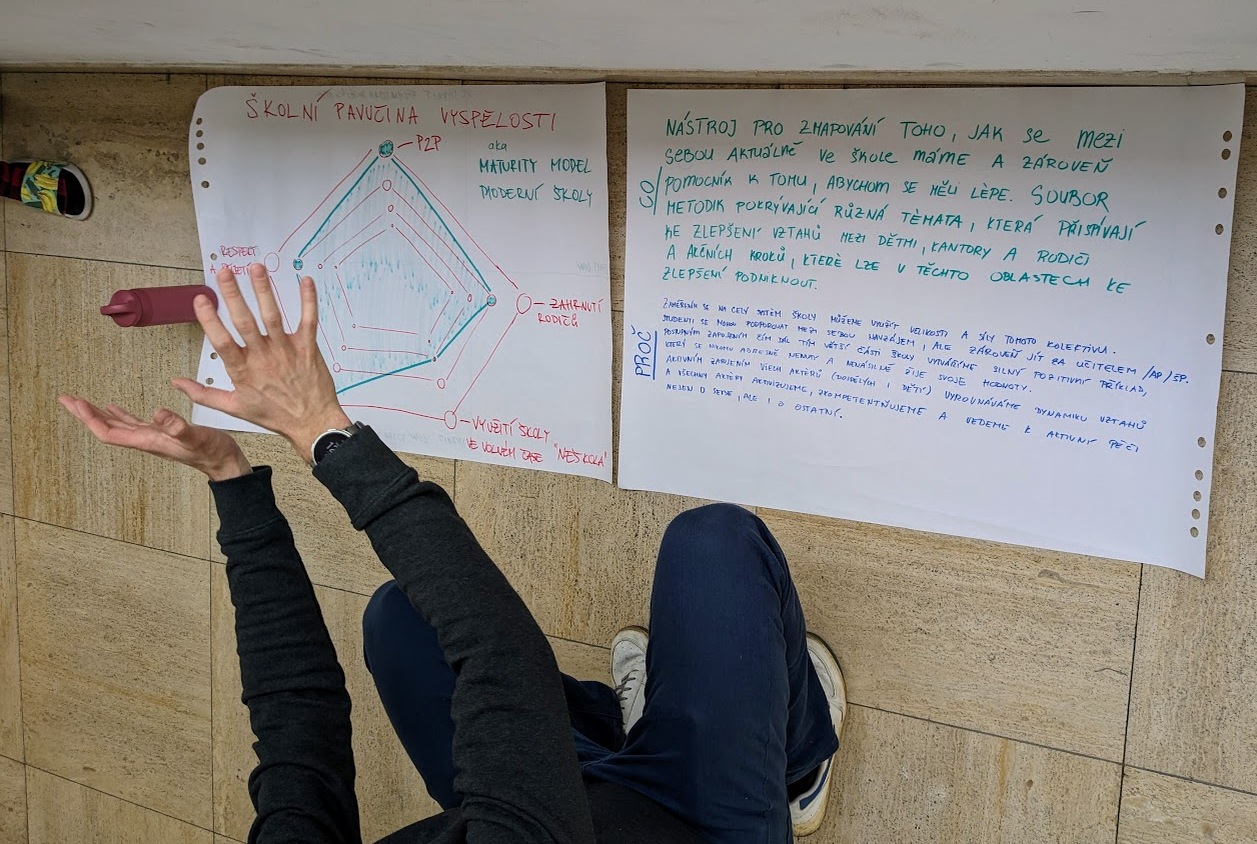 ŠKOLNÍ PAVUČINA VYSPĚLOSTI
P2P
aka
MATURITY MODEL
MODERNÍ ŠKOLY
RESPEKT
A
ZAHRNUTÍ
RODIČŮ
VYUŽITÍ ŠKOLY
VE VOLNÉM ČASE "NEŠKOLA"
CO
NÁSTROJ PRO ZMAPOVÁNÍ TOHO, JAK SE MEZI
SEBOU AKTUÁLNĚ VE ŠKOLE MÁME A ZÁROVEŇ
POMOCNÍK K TOMU, ABYCHOM SE MĚLI LÉPE. SOUBOR
METODIK POKRÝVAJÍCÍ RŮZNÁ TÉMATA, KTERÁ PŘISPÍVAJÍ
KE ZLEPŠENÍ VZTAHŮ MEZI DĚTMI, KANTORY A RODIČI
A AKČNÍCH KROKŮ, KTERÉ LZE V TĚCHTO OBLASTECH KE
ZLEPŠENÍ PODNIKNOUT.
PROČ
ZAMĚŘENÍM SE NA CELÝ SYSTÉM ŠKOLY MŮŽEME VYUŽÍT VELIKOSTI A SÍLY TOHOTO KOLEKTIVU.
STUDENTI SE MOHOU PODPOROVAT MEZI SEBOU NAVZÁJEM, ALE ZÁROVEŇ JÍT ZA UČITELEM /AP/ŠP.
POSTUPNÝM ZAPOJENÍM ČÍM DÁL TÍM VĚTŠÍ ČÁSTI ŠKOLY VYTVÁŘÍME SILNÝ POZITIVNÍ PŘÍKLAD,
KTERÝ SE NIKOMU ADRESNĚ NENUTÍ A NENÁSILNĚ ŽIJE SVOJE HODNOTY.
AKTIVNÍM ZAPOJENÍM VŠECH AKTÉRŮ (DOSPĚLÝCH I DĚTÍ) VYROVNÁVÁME DYNAMIKU VZTAHŮ
A VŠECHNY AKTÉRY AKTIVIZUJEME, ZKOMPETENTŇUJEME A VEDEME K AKTIVNÍ PÉČI
NEJEN O SEBE, ALE I O OSTATNÍ.